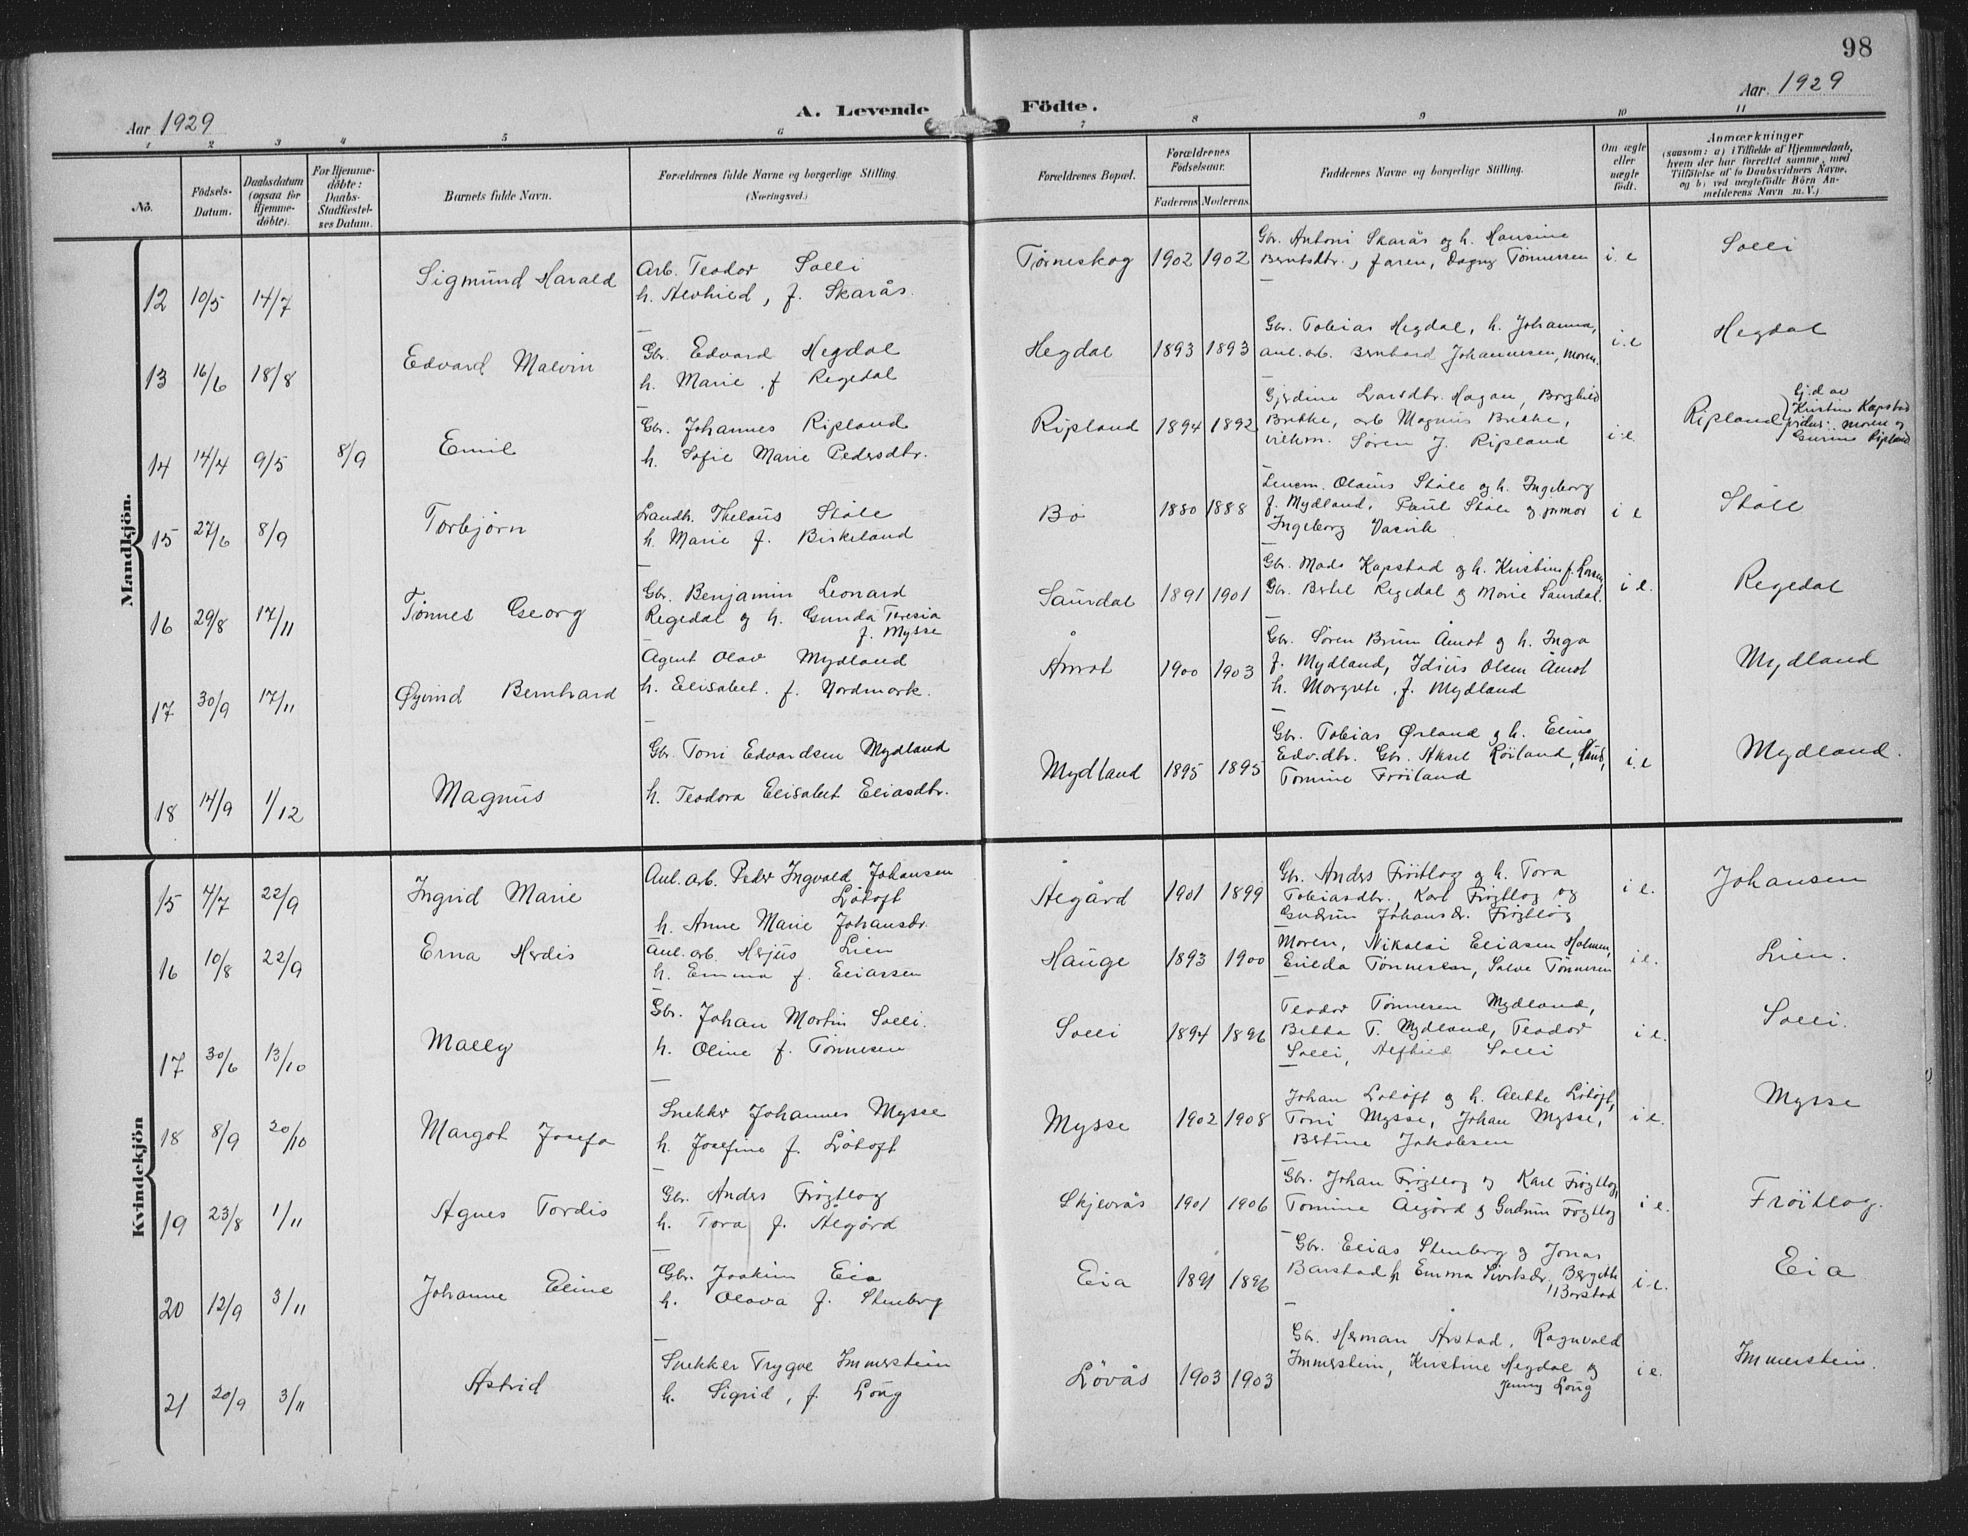 98
Aar 1929
A. Levende Födte.
Aar 1929
1 2 3 4 5 6 7 8 9 10 11
No.
Födsels-Datum.
Daabsdatum (ogsaa for Hjemme-döbte).
For Hjemme-döbte: Daabs-Stadfæstel-ses Datum.
Barnets fulde Navn.
Forældrenes fulde Navne og borgerlige Stilling. (Næringsvei.)
Forældrenes Bopæl.
Forældrenes Födselsaar.
Faderens Moderens
Faddernes Navne og borgerlige Stilling.
Om ægte eller uægte födt.
Anmærkninger
(saasom: a) i Tilfælde af Hjemmedaab,
hvem der har forrettet samme, med
Tilföielse af to Daabsvidners Navne,
og b) ved uægtefödte Börn An-
melderens Navn m. V.)
Mandkjön.
12 10/5 14/7 Sigmund Harald
Arb. Teodor Solli
h. Alvhild, f. Skarås.
Tørneskog 1902 1902
Gbr. Antoni Skarås og h. Hansine
Berntsdtr., faren, Dagny Tønnessen
i. e Solli
13 16/6 18/8 Edvard Malvin
Gbr. Edvard Hegdal
h. Marie f. Regedal
Hegdal 1893 1893
Gbr. Tobias Hegdal, h. Johanna,
anl. arb. Bernhard Johannesen, moren.
i. e Hegdal
14 14/4 9/5 8/9 Emil
Gbr. Johannes Ripland
h. Sofie Marie Pedersdtr.
Ripland 1894 1892
Gjerdine Larsdtr. Hagan, Borghild
Brekke, arb Magnus Brekke,
ulkm. Søren J. Ripland
i e. Ripland
Gj.d. av
Kristine Kapstad
vidner: moren og
Gurine Ripland
15 27/6 8/9 Torbjørn
Landh. Thelaus Støle
h. Marie f. Birkeland
Bø 1880 1888
Lensm. Olaus Støle og h. Ingeborg
f. Mydland, Paul Støle og farmor
Ingeborg Vasvik
i e Støle
16 29/8 17/11 Tønnes Georg
Gbr. Benjamin Leonard
Regedal og h. Gunda Teresia
f. Mysse
Saurdal 1891 1901
Gbr. Mads Kapstad og h. Kristine f. Larsen,
Gbr. Bertel Regedal og Marie Saurdal.
i e. Regedal
17 30/9 17/11 Øyvind Bernhard
Agent Olav Mydland
h. Elisabet. f. Nordmark.
Åmot 1900 1903
Gbr. Søren Bruun Åmot og h. Inga
f. Mydland, Idius Olsen Åmot
h. Margrete, f. Mydland
Mydland
18 14/9 1/12 Magnus
Gbr. Toni Edvardsen Mydland
h. Teodora Elisabet Eliasdtr.
Mydland 1895 1895
Gbr. Tobias Ørland og h. Eline
Edv.dtr. Gbr. Aksel Røiland,
Tomine Frøiland
i. e Mydland.
Kvindekjön
15 4/7 22/9 Ingrid Marie
Anl. arb. Peder Ingvald Johansen
Løtoft
h. Anne Marie Johansdr.
Ålgård 1901 1899
Gbr. Anders Frøitlog og h. Tora
Tobiasdtr., Karl Frøytlog og
Gudrun Johansdr. Frøytlog
i e. Johansen
16 10/8 22/9 Erna Herdis
Anl. arb. Herjus Lien
h. Emma f. Eliassen
Hauge 1893 1900
Moren, Nikolai Eliasen Holmen,
Enilda Tønnesen, Salve Tønnesen
i e. Lien.
17 30/6 13/10 Mally
Gbr. Johan Martin Solli.
h. Oline f. Tønnesen
Solli 1894 1896
Teodor Tønnesen Mydland,
Betta T. Mydland, Teodor
Solli, Alfhild Solli
i e. Solli.
18 8/9 20/10 Margot Josefa
Snekker Johannes Mysse
h. Josefine f. Løtoft
Mysse 1902 1908
Johan Løtoft og h. Alette Løtoft,
Toni Mysse, Johan Mysse,
Bertine Jakobsen
i e. Mysse
19 23/8 1/11 Agnes Tordis
Gbr. Anders Frøytlog
h. Tora f. Ålgård
Skjevrås 1901 1906
Gbr. Johan Frøytlog og Karl Frøytlog,
Tomine Ålgård og Gudrun Frøytlog
i e. Frøitlog.
20 12/9 3/11 Johanne Eline
Gbr. Joakim Eia
h. Olava f. Stenberg
Eia 1891 1896
Gbr. Elias Stenberg og Jonas
Barstad h. Emma Sivertsdr, Bergitte
Barstad
i e. Eia
21 20/9 3/11 Astrid
Snekker Trygve Immerstein
h. Sigrid, f. Long
Løvås 1903 1903
Gbr. Herman Årstad, Ragnvald
Immerstein, Kristine Hegdal og
Jenny Long
i e. Immerstein.